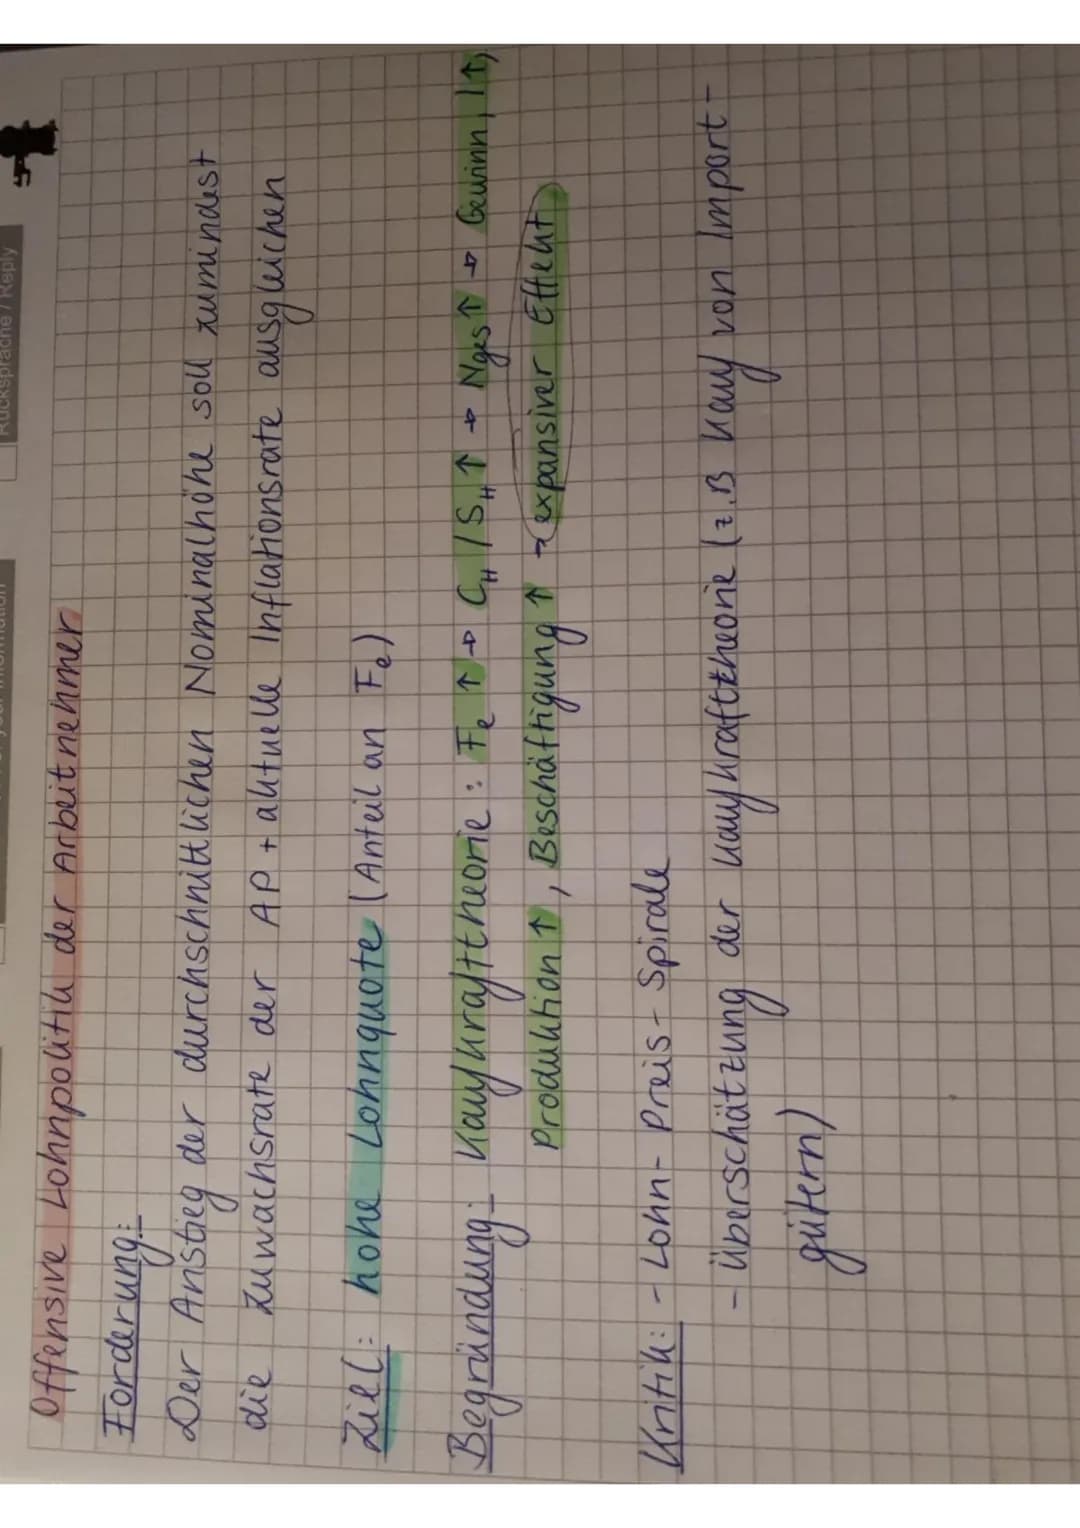 Rücksprache / Reply
Offensive Lohnpolitik der Arbeitnehmer
Forderung:
Der Anstieg der durchschnittlichen Nominallhöhe soll zumindest
die Zuwachsrate der AP + aktuelle Inflationsrate ausgleichen
Ziel: hohe Lohnquote (Anteil an Fe)
Begründung: Kaufkrafttheorie: Fe ↑ → CH / SH ↑ → Nges ↑ → Gewinn, I ↑,
Produktion ↑, Beschäftigung ↑ → expansiver Effekt
Kritik: - Lohn- Preis- Spirale
- Überschätzung der Kaufkrafttheorie (z.B Kauf von Import-
gütern)